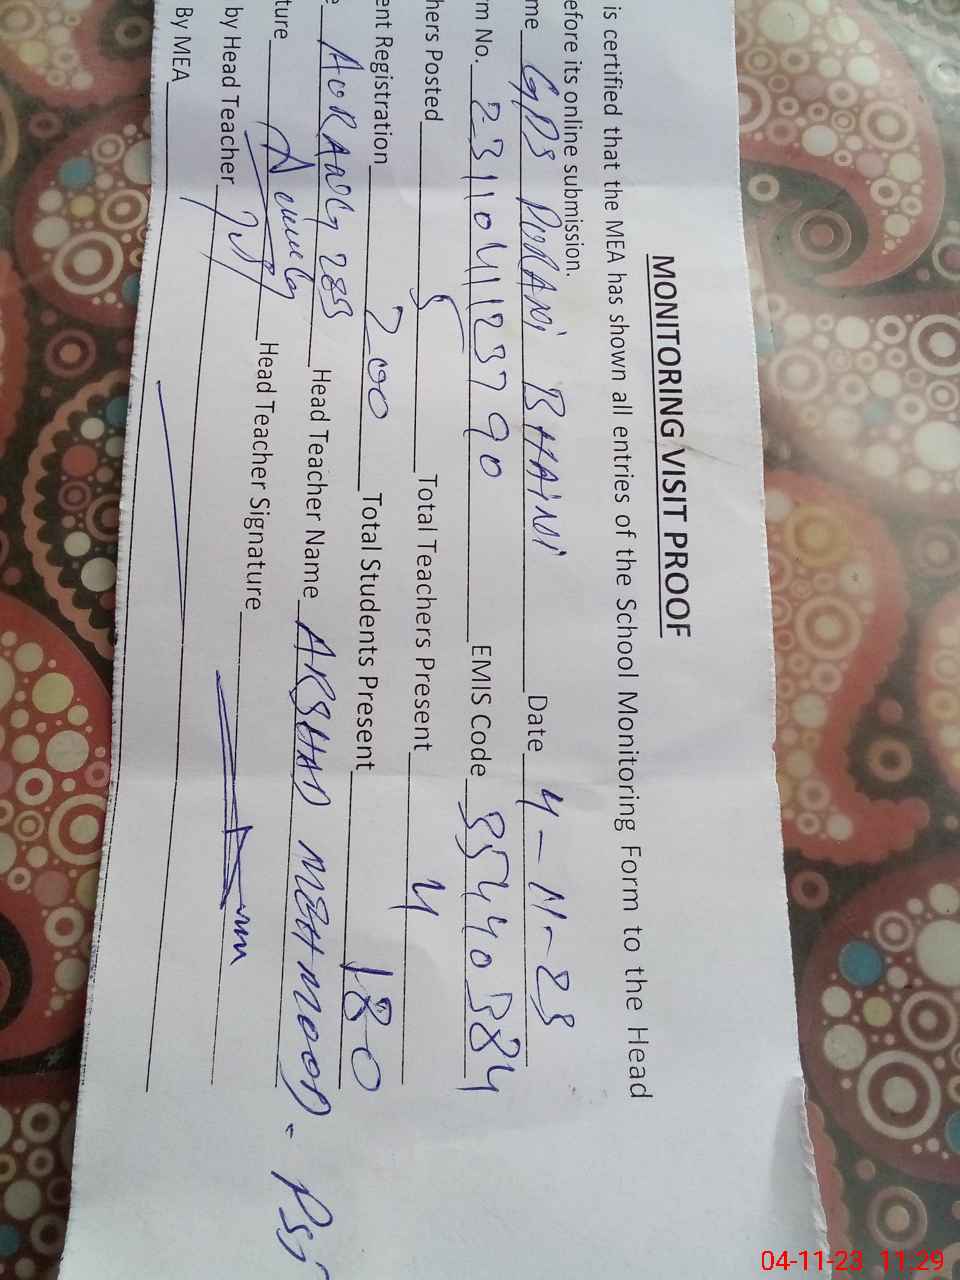 MONITORING VISIT PROOF
is certified that the MEA has shown all entries of the School Monitoring Form to the Head
efore its online submission.
me GPS PURANI BHAINI Date 4-11-23
rm No. 23110411123790 EMIS Code 35440384
hers Posted 5 Total Teachers Present 4
ent Registration 200 Total Students Present 180
e Head Teacher Name ARSHAD MEHMOOD - PST
ture Head Teacher Signature
by Head Teacher
By MEA
04-11-23 11:29